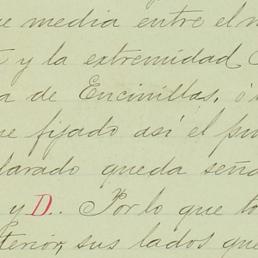 ue media entre el
y la extremidad
a de Encinillas, ó
ue fijado así el pun
larado queda seña
y D. Por lo que to
terior, sus lados que